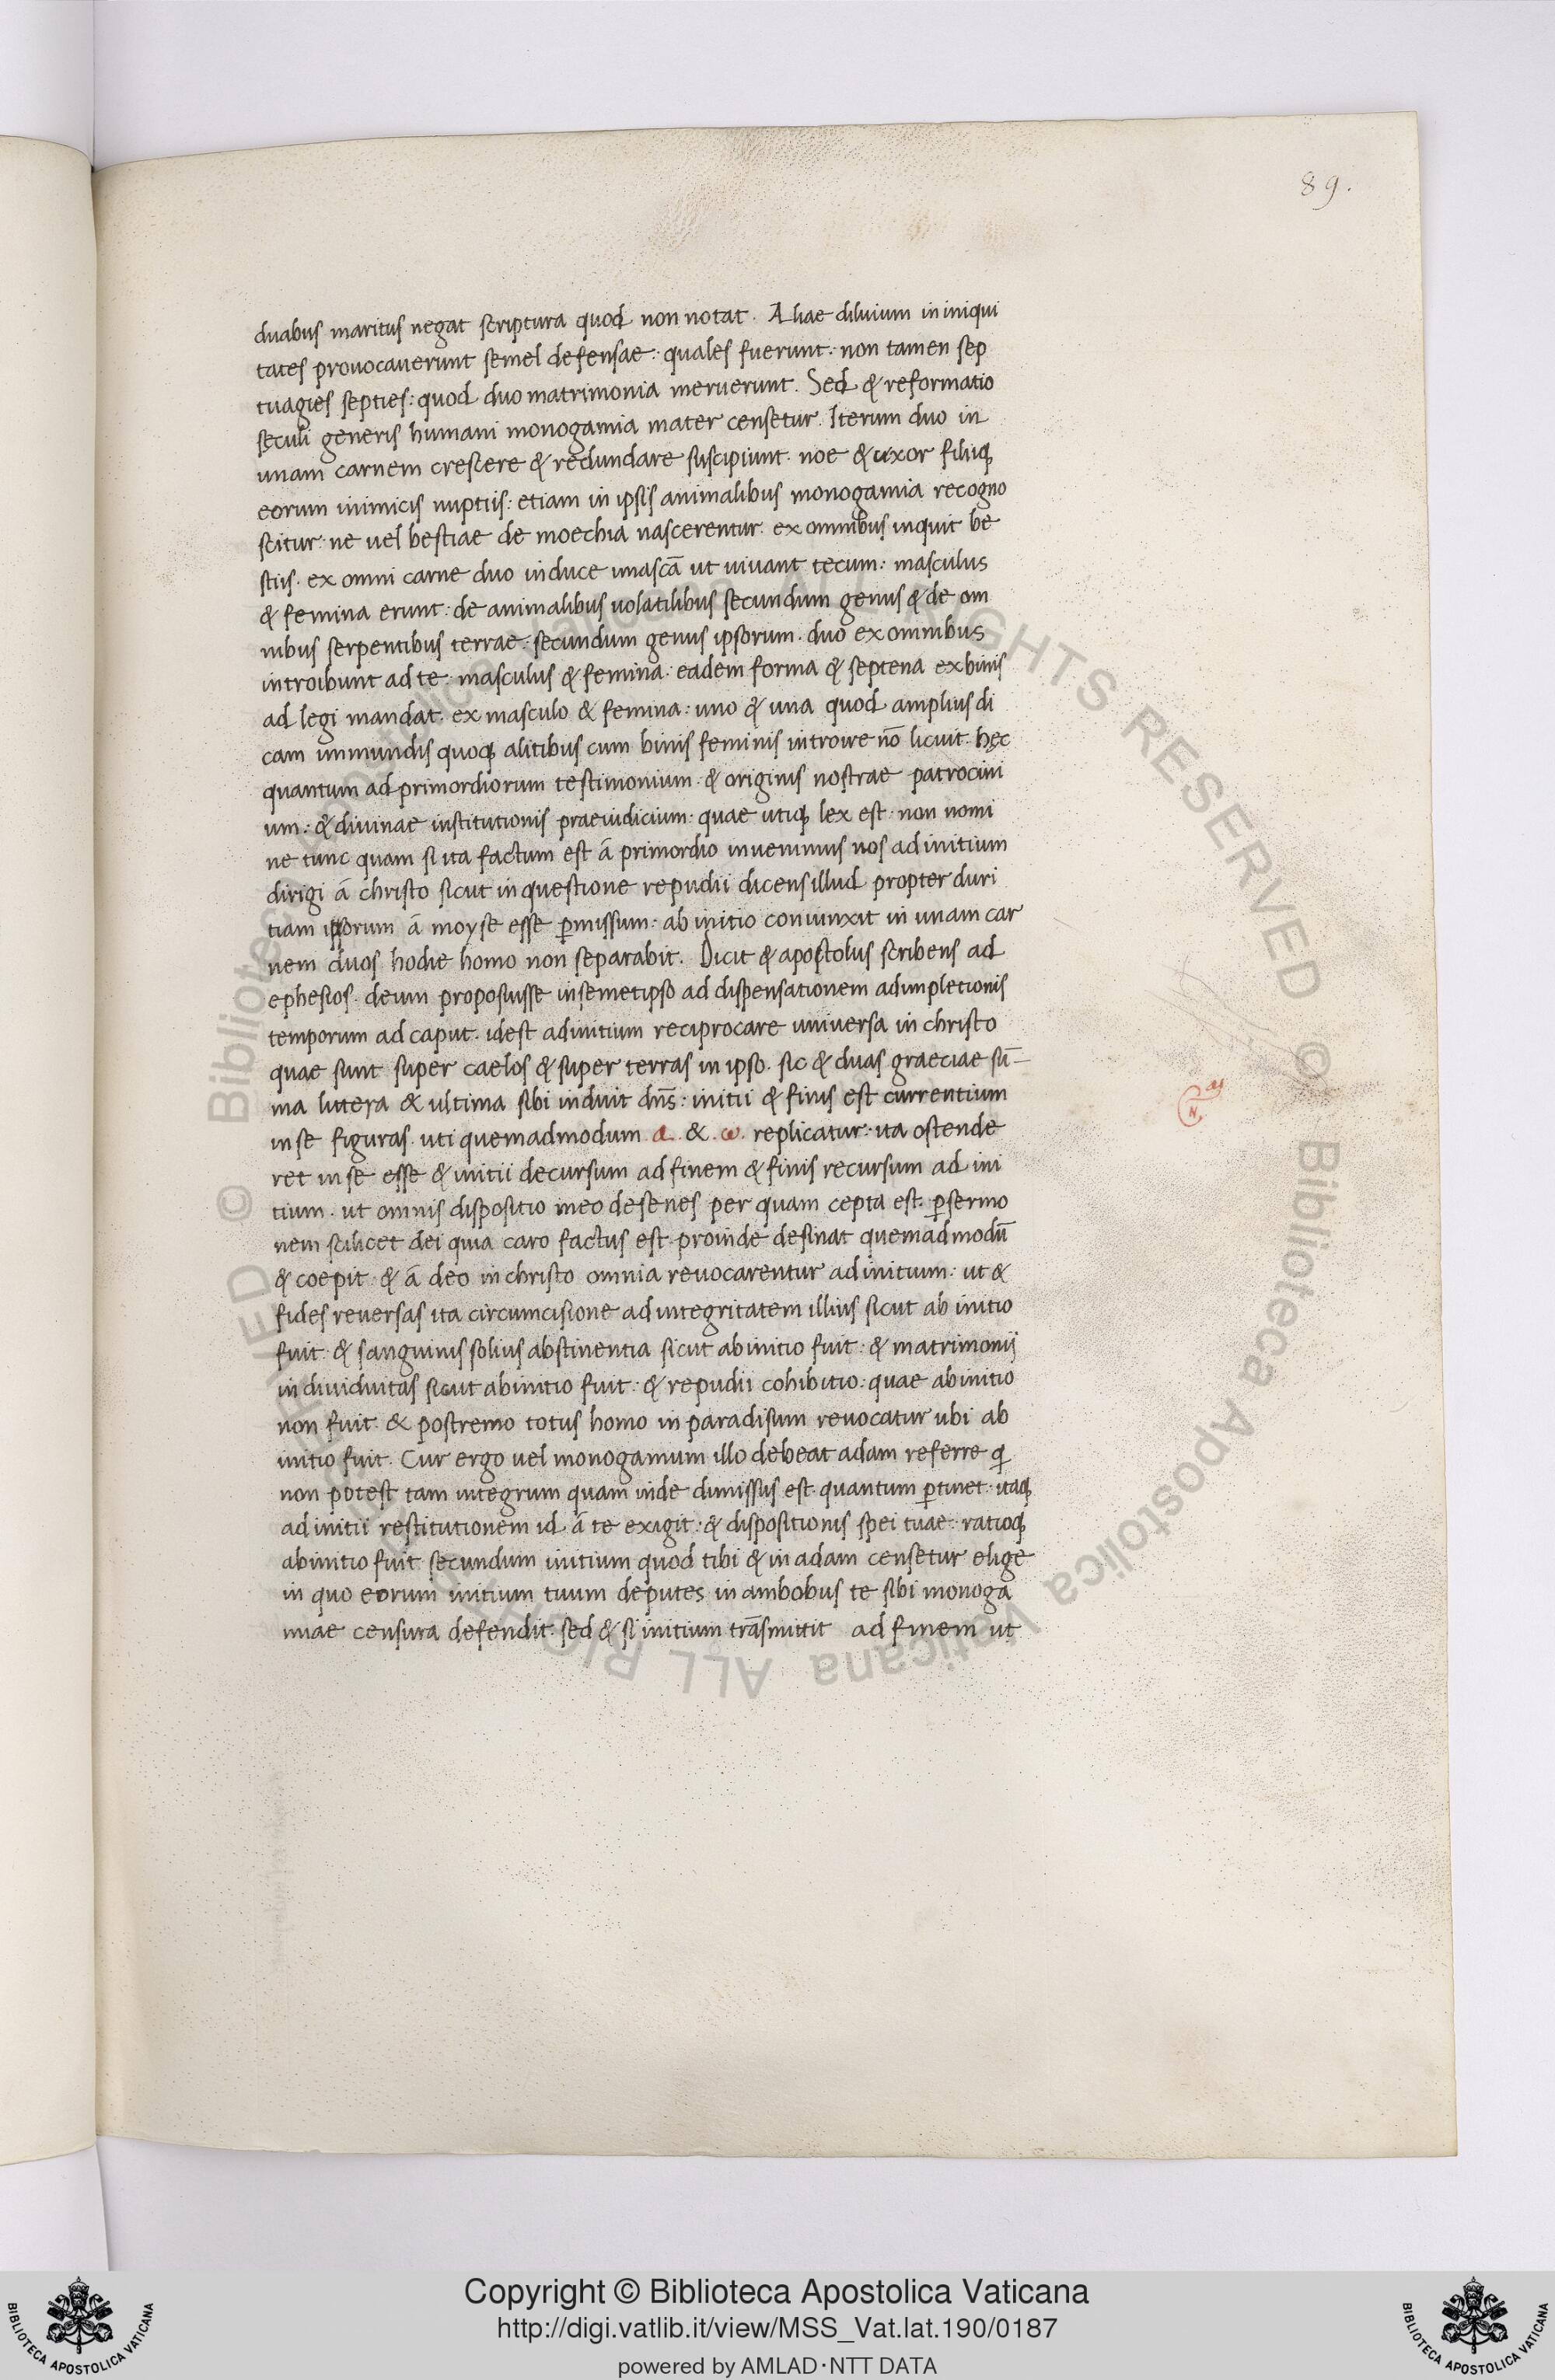 89.
duabus maritus negat scriptura quod non notat. Aliae diluium in iniqui
tates prouocauerunt semel defensae: quales fuerunt: non tamen sep
tuagies septies: quod duo matrimonia meruerunt. Sed & reformatio
seculi generis humani monogamia mater censetur. Iterum duo in
unam carnem crescere & redundare suscipiunt. noe & uxor filiiq
eorum inimicis nuptiis: etiam in ipsis animalibus monogamia recogno
scitur: ne uel bestiae de moechia nascerentur. ex omnibus inquit be
stiis. ex omni carne duo induce unascā ut uiuant tecum: masculus
& femina erunt: de animalibus uolatilibus secundum genus & de om
nibus serpentibus terrae: secundum genus ipsorum. duo ex omnibus
introibunt ad te: masculus & femina: eadem forma & septena ex binis
ad legi mandat. ex masculo & femina: uno & una quod amplius di
cam immundis quoq alitibus cum binis feminis introire nō licuit. hęc
quantum ad primordiorum testimonium. & originis nostrae patrocini
um: & diuinae institutionis praeiudicium: quae utiq lex est: non nomi
ne tunc quam si ita factum est ā primordio inuenimus nos ad initium
dirigi ā christo sicut in questione repudii dicens illud propter duri
tiam ipsorum ā moyse esse pmissum: ab initio coniunxit in unam car
nem duos hodie homo non separabit. Dicit & apostolus scribens ad
ephesios. deum proposuisse insemetipso ad dispensationem adimpletionis
temporum ad caput. idest ad initium reciprocare uniuersa in christo
quae sunt super caelos & super terras in ipso. sic & duas graeciae sū
ma littera & ultima sibi induit dn̄s: initii & finis est currentium
in se figuras. uti quemadmodum α. &. ω. replicatur: ita ostende
ret in se esse & initii decursum ad finem & finis recursum ad ini
tium. ut omnis dispositio meo desenes per quam cepta est. psermo
nem scilicet dei quia caro factus est proinde desinat quemadmodū
& coepit: & ā deo in christo omnia reuocarentur ad initium: ut &
fides reuersas ita circumcisione ad integritatem illius sicut ab initio
fuit: & sanguinis solius abstinentia sicut ab initio fuit: & matrimonij
indiuiduitas sicut ab initio fuit: & repudii cohibitio: quae ab initio
non fuit. & postremo totus homo in paradisum reuocatur ubi ab
initio fuit. Cur ergo uel monogamum illo debeat adam referre q
non potest tam integrum quam inde dimissus est. quantum ptinet: itaq
ad initii restitutionem id ā te exigit: & dispositionis spei tuae: ratioq
ab initio fuit secundum initium quod tibi & in adam censetur elige
in quo eorum initium tuum deputes in ambobus te sibi monoga
miae censura defendit. sed & si initium trāsmittit ad finem ut
© Biblioteca Apostolica Vaticana ALL RIGHTS RESERVED © Biblioteca Apostolica Vaticana ALL RIGHTS RESERVED
BIBLIOTECA APOSTOLICA VATICANA
Copyright © Biblioteca Apostolica Vaticana
http://digi.vatlib.it/view/MSS_Vat.lat.190/0187
powered by AMLAD·NTT DATA
BIBLIOTECA APOSTOLICA VATICANA